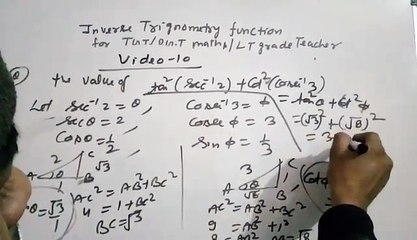 Inverse Trignometry function
for TGT/Dir.T maths/LT grade Teacher
Video-10
the value of tan²(sec⁻¹2) + Cot²(cosec⁻¹3)
Let sec⁻¹2 = θ
secθ = 2
Cosθ = 1/2
Cosec⁻¹3 = ϕ
Cosec ϕ = 3
Sin ϕ = 1/3
= tan²θ + Cot²ϕ
= (√3)² + (√8)²
= 3
2 C
√3
A θ B
1
AC² = AB² + BC²
4 = 1 + BC²
BC = √3
θ = √3/1
3 C
1
A B
√8
AC² = AB² + BC²
9 = AB² + 1²
Cot